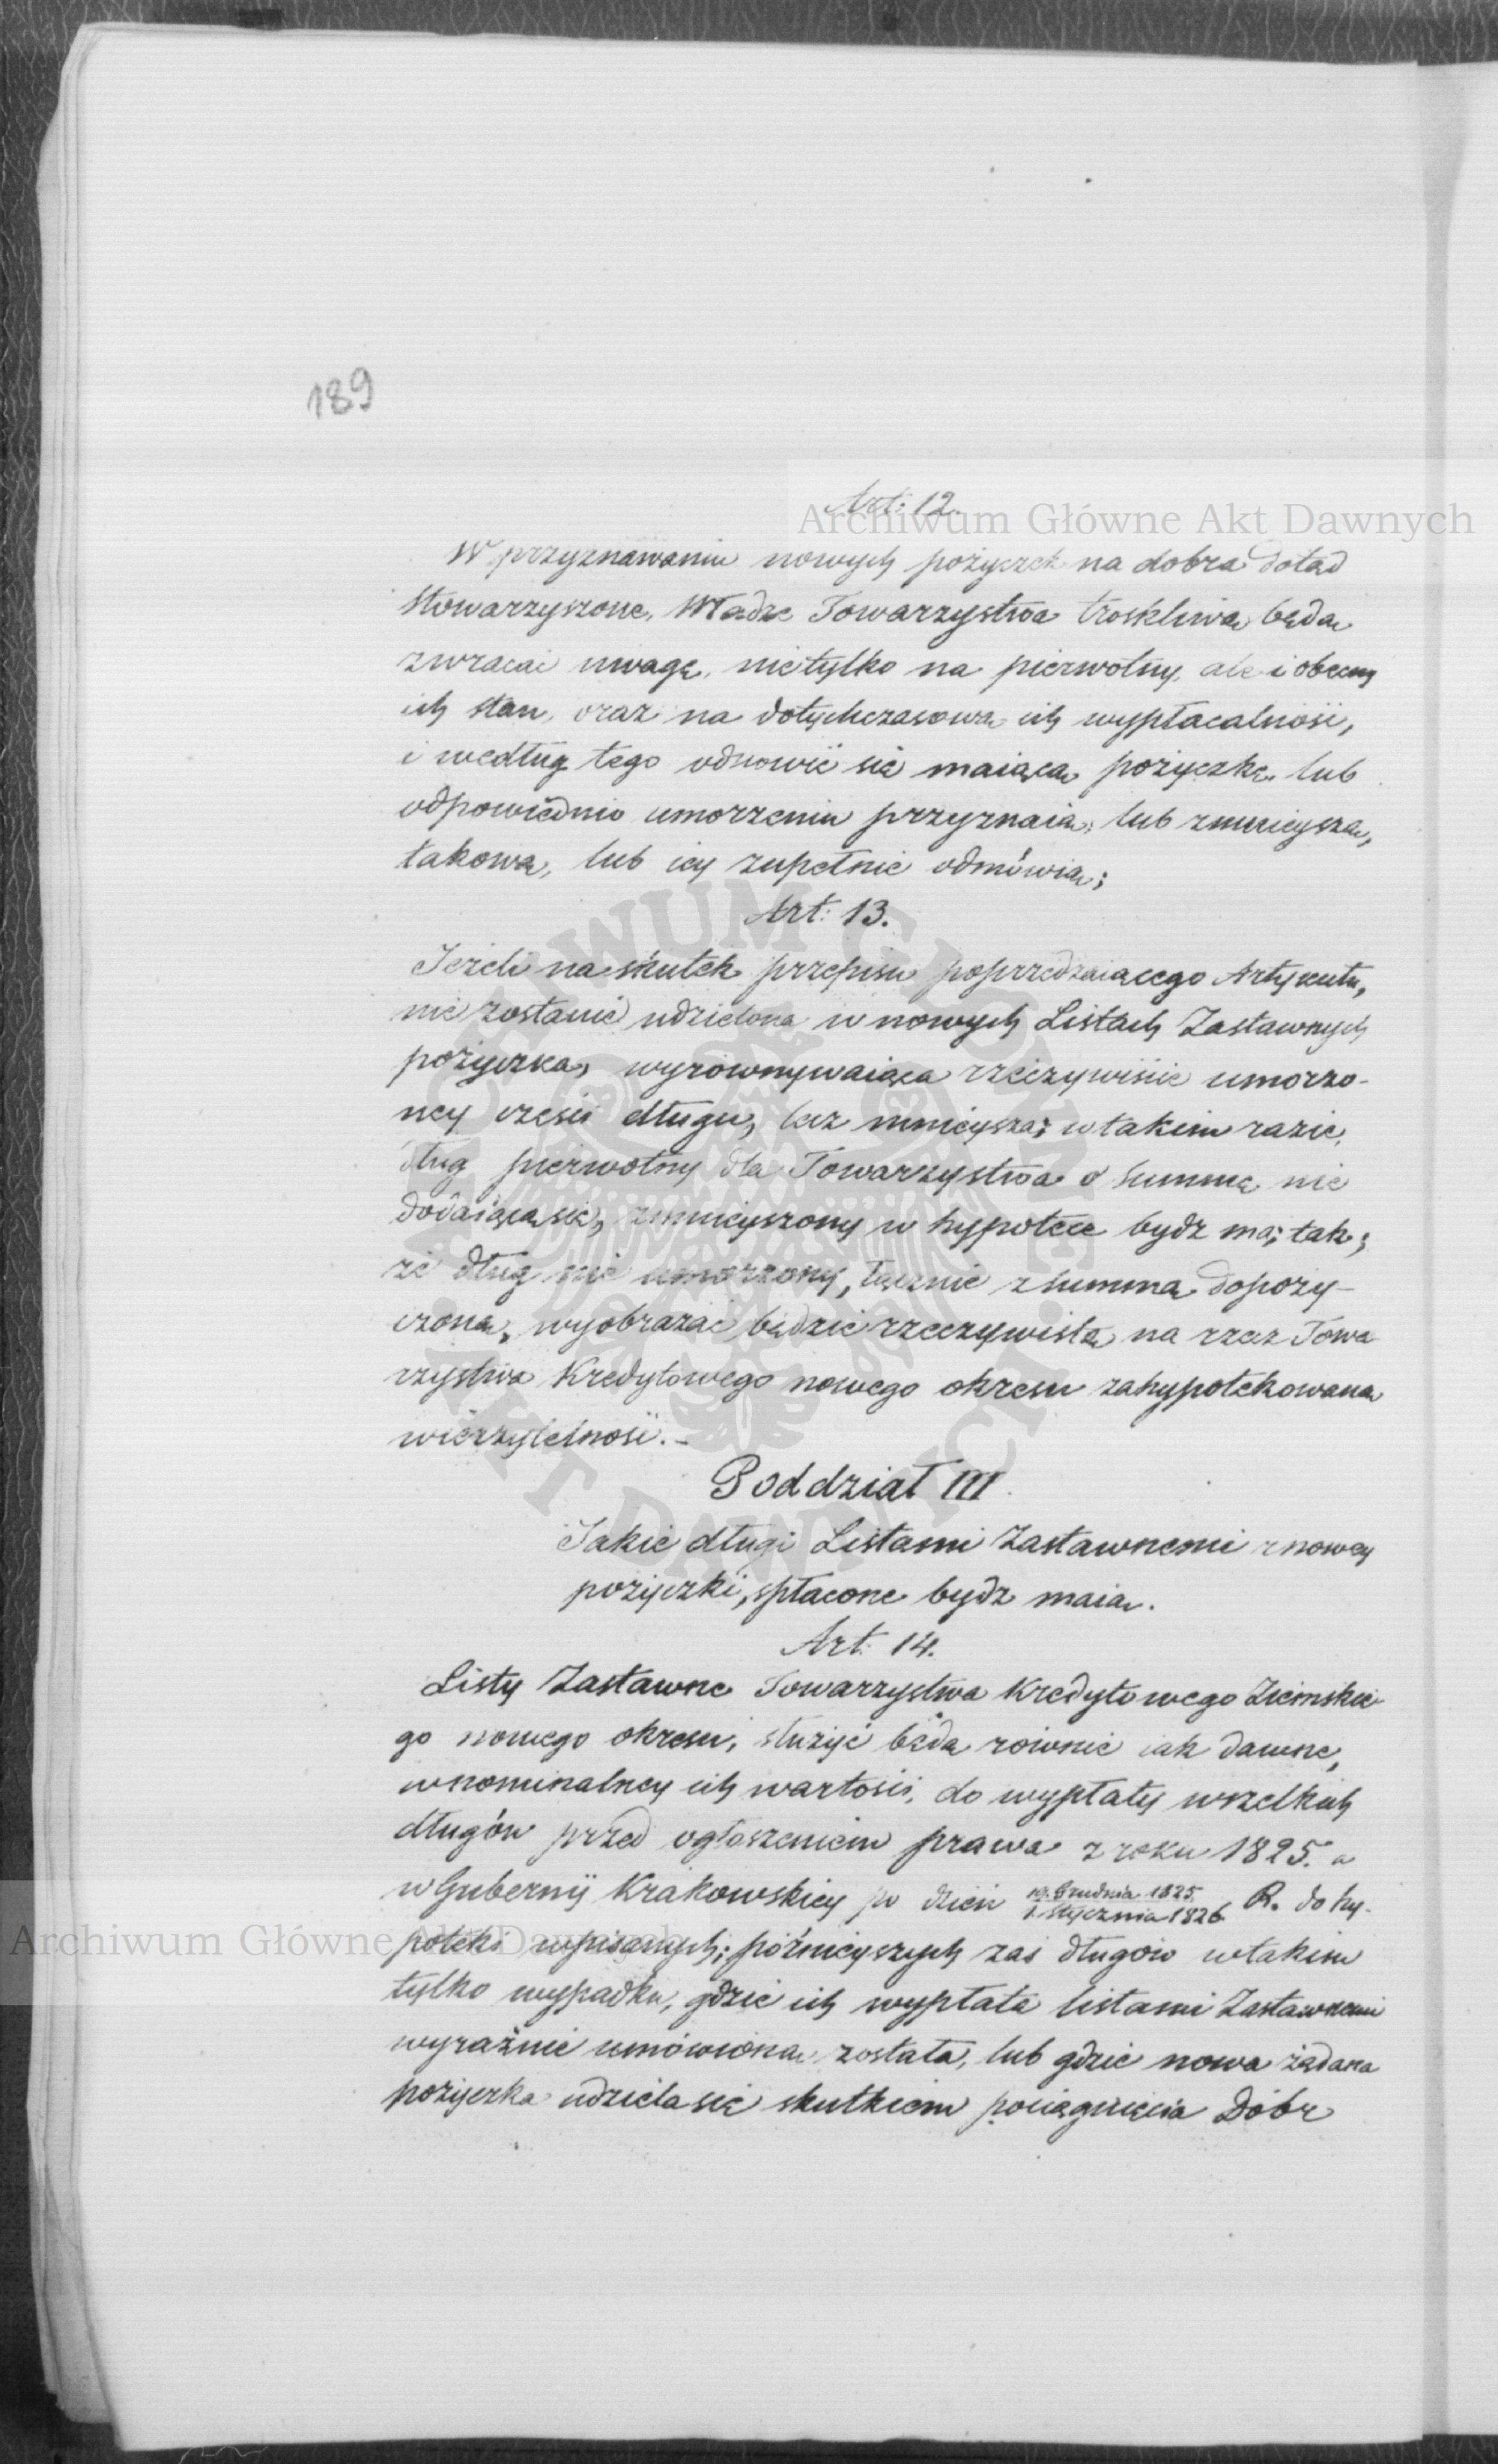 189
Art: 12.
Archiwum Główne Akt Dawnych
W przyznawaniu nowych pożyczek na dobra dotąd
stowarzyszone, Władze Towarzystwa troskliwą będą
zwracać uwagę, nietylko na pierwotny, ale i obecny
ich stan, oraz na dotychczasową ich wypłacalność,
i według tego odnowić się maiącą pożyczkę lub
odpowiednio umorzeniu przyznaią, lub zmnieyszą,
takową, lub iey zupełnie odmówią;
Art: 13.
Jeżeli na skutek przepisu poprzedzaiącego Artykułu,
nie zostanie udzielona w nowych Listach Zastawnych
pożyczka, wyrównywaiąca rzeczywiście umorzo-
ney części długu, lecz mnieysza; w takim razie,
dług pierwotny dla Towarzystwa o summę nie
dodaiącą się, zmnieyszony w hypotece bydz ma; tak;
że dług nie umorzony, łącznie z summą dopoży-
czoną, wyobrażać będzie rzeczywistą na rzecz Towa
rzystwa Kredytowego nowego okresu zahypotekowaną
wierzytelność. -
Poddział III.
Jakie długi Listami Zastawnemi z nowey
pożyczki, spłacone bydz maią.
Art: 14.
Listy Zastawne Towarzystwa Kredytowego Ziemskie-
go nowego okresu, służyć będą równie iak dawne,
w nominalney ich wartości, do wypłaty wszelkich
długów przed ogłoszeniem prawa z roku 1825. a
w Gubernij Krakowskiey po dzień 19. Grudnia 1825. / 1. stycznia 1826. R. do hy-
Archiwum Główne Akt Dawnych
poteki wpisanych; późnieyszych zaś długów w takim
tylko wypadku, gdzie ich wypłata listami Zastawnemi
wyraźnie umówioną została, lub gdzie nowa żądana
pożyczka udziela się skutkiem pociągnięcia Dóbr